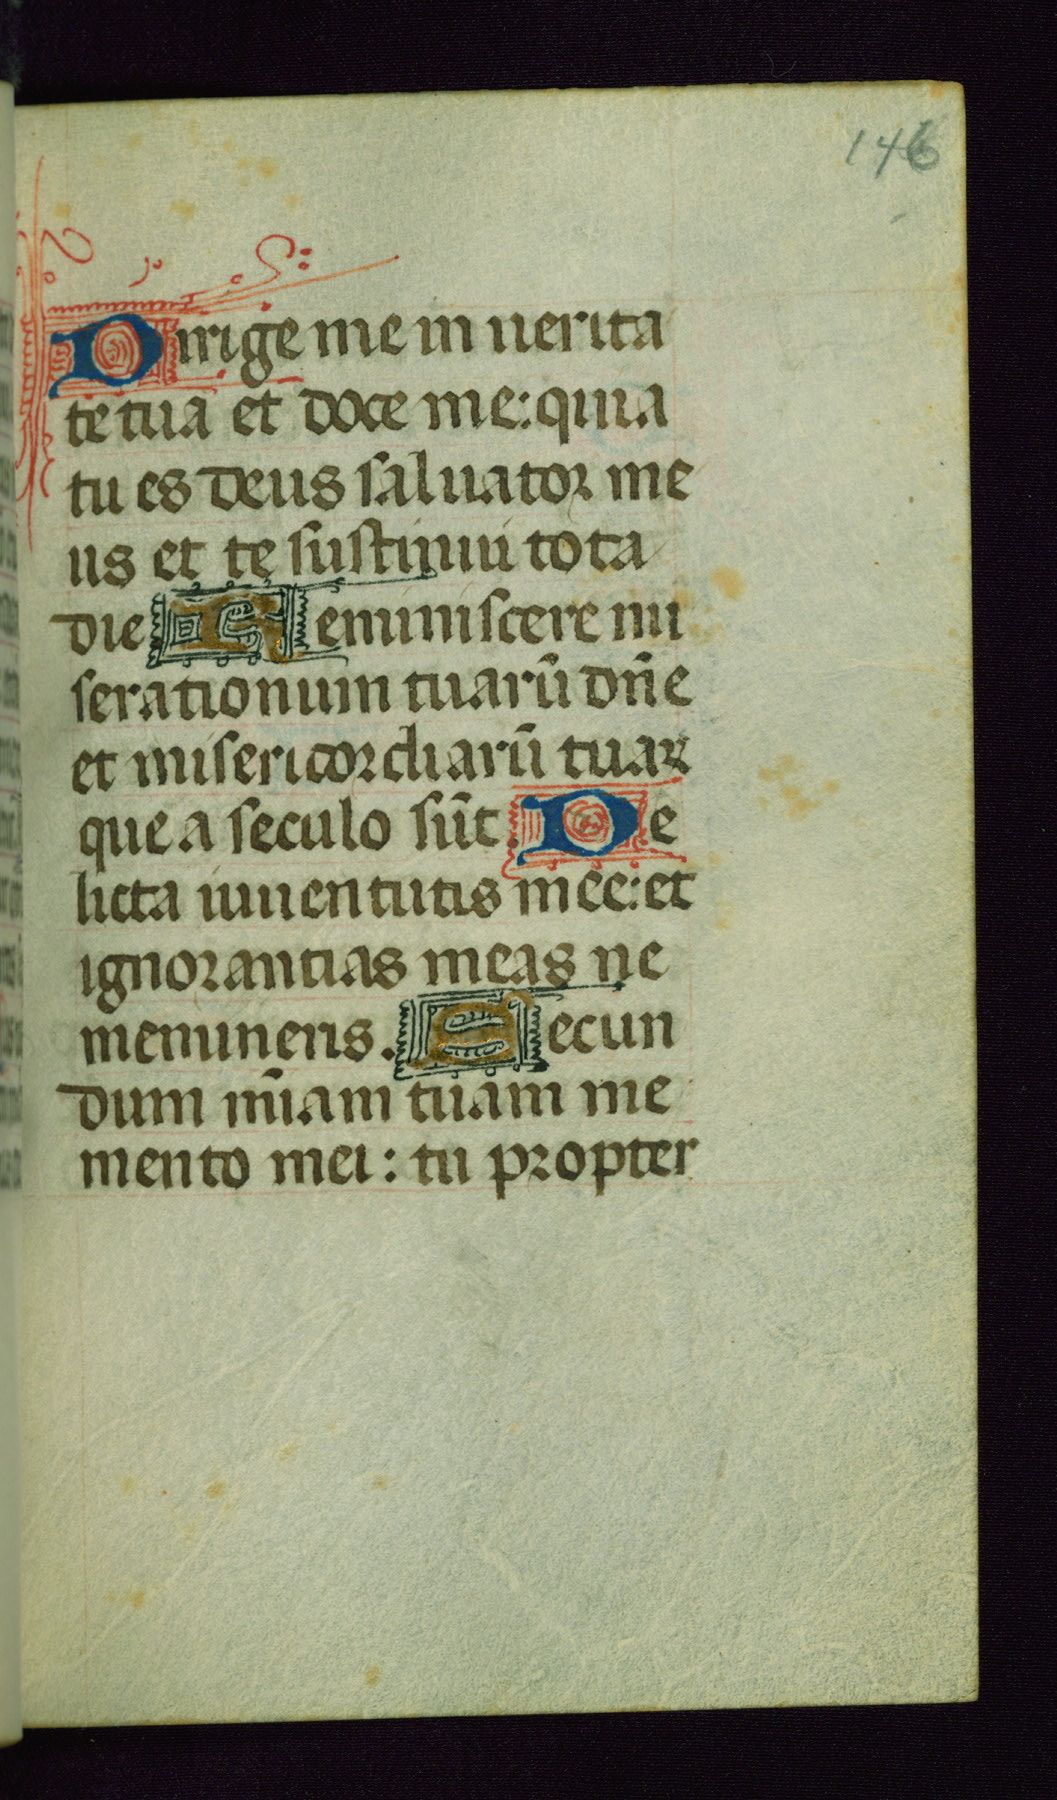 146
Dirige me in uerita
te tua et doce me: quia
tu es deus saluator me
us et te sustinui tota
die Reminiscere mi
serationum tuarū dn̄e
et misericordiarū tuaꝝ
que a seculo sūt. De
licta iuuentutis mee: et
ignorantias meas ne
memineris. Secun
dum mīam tuam me
mento mei: tu propter